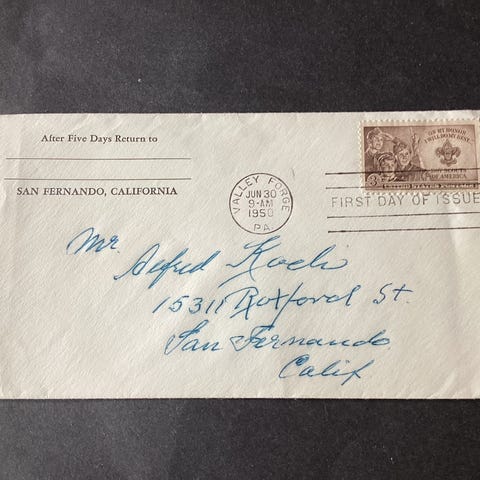 After Five Days Return to
SAN FERNANDO, CALIFORNIA
VALLEY FORGE
JUN 30
9-AM
1950
PA
ON MY HONOR
I WILL DO MY BEST
BOY SCOUTS
OF AMERICA
3¢
UNITED STATES POSTAGE
FIRST DAY OF ISSUE
Mr.
Alfred Koch
15311 Roxford St.
San Fernando
Calif